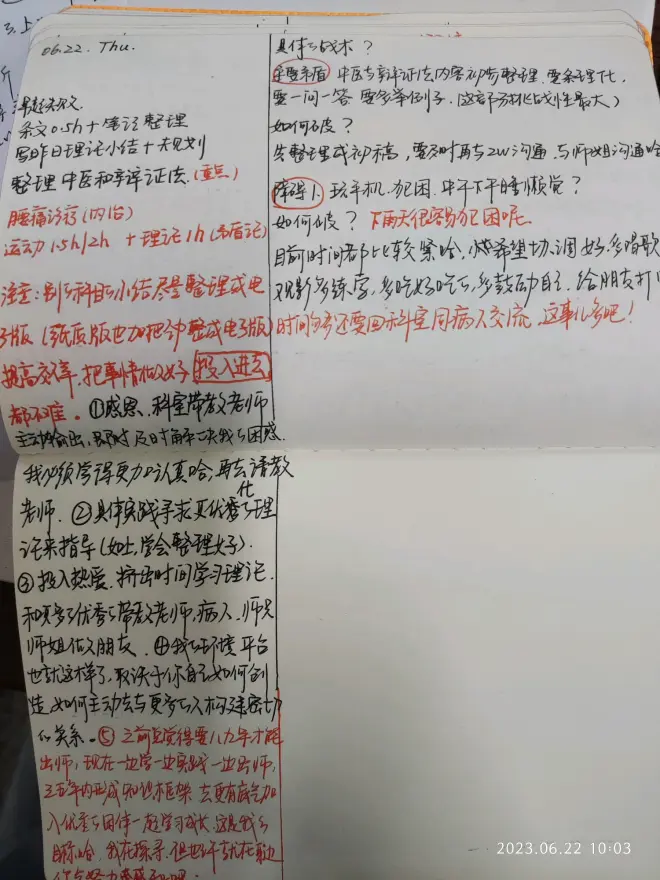 06.22. Thu.
条文0.5h + 笔记整理
写昨日理论小结 + 大规划
整理中医和亭评证法.(重点)
腰痛诊疗(内治)
运动1.5h/2h + 理论1h(矛盾论)
注意:别的科目的小结尽量整理成电
子版(纸质版也加把劲整成电子版)
提高效率.把事情做好 投入进去
都不难.①感恩.科室带教老师
主动输出,即时及时解决我的困惑.
我必须学得更加认真哈,再去请教
老师.②具体实践寻求更优秀的理
论来指导(如上,学会整理好).
③投入热爱.挤出时间学习理论.
和更多的优秀的带教老师,病人.师兄
师姐做朋友.④我的环境平台
也就这样了,取决于你自己如何创
造.如何主动去与更多的人构建密切
的关系.⑤之前总觉得要八九年才能
出师,现在一边学一边实践一边出师,
三五年内形成知识框架.去更有底气加
入优秀的团体一起学习成长.这是我的
目标哈,我在探寻.
具体的战术?
主要矛盾 中医与亭评证法内容初步整理.要条理化,
要一问一答 要多举例子.(这部分挑战性最大)
如何破?
先整理成初稿,要及时再与ZW沟通.与师姐沟通哈
障碍1.玩手机.犯困.中午下午睡懒觉?
如何破?下雨天很容易犯困呢.
目前时间都比较紧哈,小睡希望切.调好.多唱歌
多练字,多吃好吃的,多鼓动自己.给朋友打
时间多还要回科室同病人交流.这事儿多吧!
2023.06.22 10:03